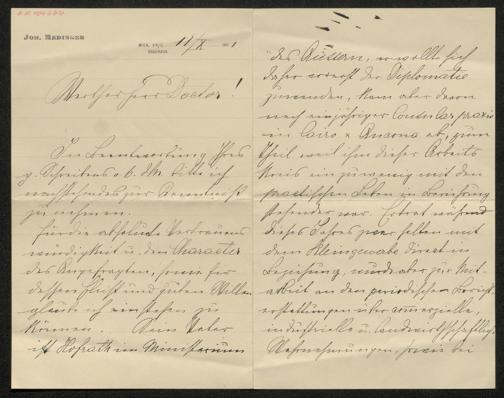 Joh. Medinger
11/X 1
Werther Herr Doctor!
In Beantwortung Ihres
g. Schreibens v. 6. dM. bitte ich
nachstehendes zur Kenntniß
zu nehmen.
Für die absolute Vertrauens
würdigkeit u. den Character
des Angefragten, sowie für
dessen Fleiß und guten Willen
glaube ich einstehen zu
können. Sein Vater
ist Hofrath im Ministerium
des Äussern, er wollte sich
daher vorerst der Diplomatie
zuwenden, kam aber davon
nach einjähriger Consularpraxis
in Cairo u. Ancona ab, zum
Theil, weil ihm dieser Arbeits
kreis ein zu wenig mit dem
praktischen Leben in Berührung
stehender war. Er trat während
dieses Jahres zwar selten mit
dem Kleingewerbe direct in
Beziehung, wurde aber zur Mit-
arbeit an den periodischen Bericht-
erstattungen über commerzielle,
industrielle u. landwirtschaftliche
Wahrnehmungen, sowie bei